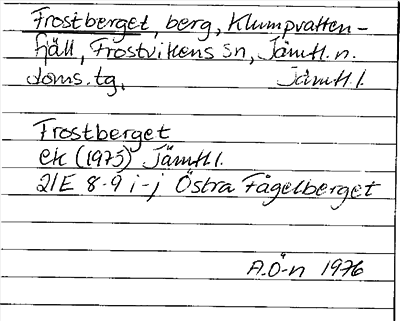 Frostberget, berg, Klumpvatten-
fjäll, Frostvikens sn, Jämtl. n.
doms. tg, Jämtl. l.
Frostberget
ek (1975) Jämtl. l.
21E 8-9 i-j Östra Fågelberget
A.Ö-n 1976